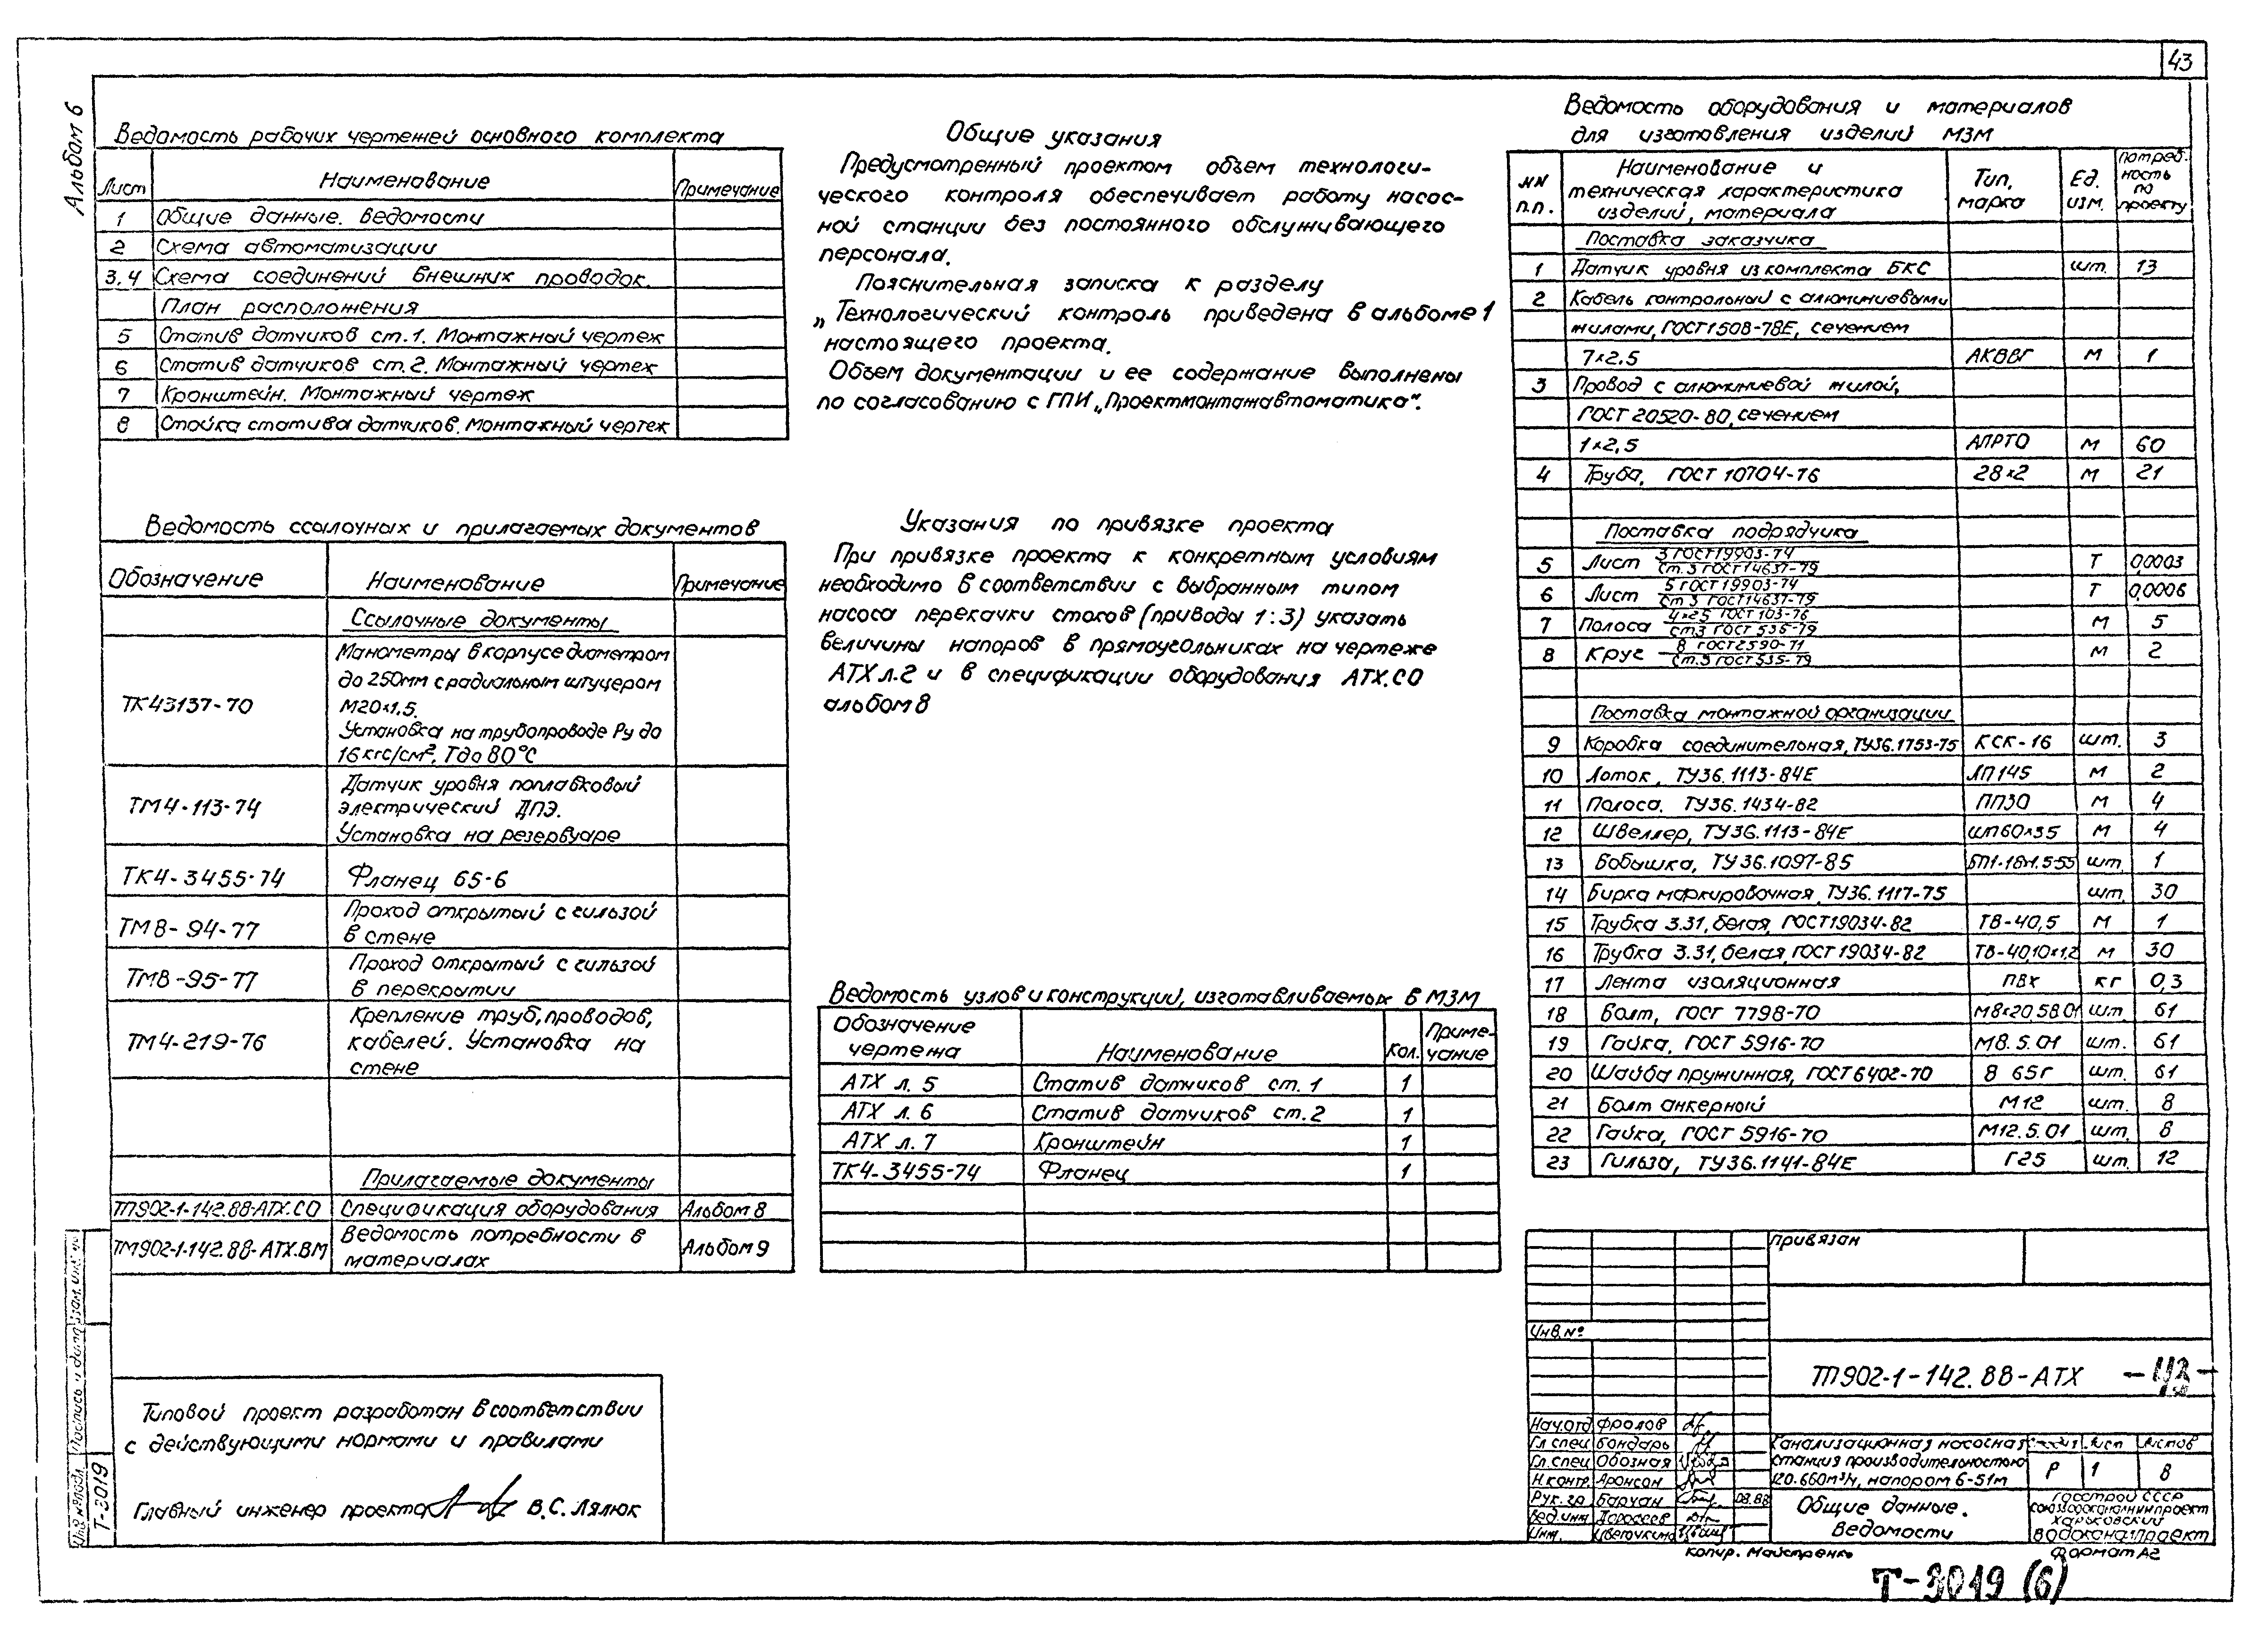 43
Альбом 6
Ведомость рабочих чертежей основного комплекта
Лист Наименование Примечание
1 Общие данные. Ведомости
2 Схема автоматизации
3.4 Схема соединений внешних проводок.
План расположения
5 Статив датчиков ст.1. Монтажный чертеж
6 Статив датчиков ст.2. Монтажный чертеж
7 Кронштейн. Монтажный чертеж
8 Стойка статива датчиков. Монтажный чертеж
Ведомость ссылочных и прилагаемых документов
Обозначение Наименование Примечание
Ссылочные документы
ТК43137-70 Манометры в корпусе диаметром
до 250мм с радиальным штуцером
М20×1,5.
Установка на трубопроводе Ру до
16 кгс/см², Т до 80°С
ТМ4-113-74 Датчик уровня поплавковый
электрический ДПЭ.
Установка на резервуаре
ТК4-3455-74 Фланец 65-6
ТМ8-94-77 Проход открытый с гильзой
в стене
ТМ8-95-77 Проход открытый с гильзой
в перекрытии
ТМ4-219-76 Крепление труб, проводов,
кабелей. Установка на
стене
Прилагаемые документы
ТП902-1-142.88-АТХ.СО Спецификация оборудования Альбом 8
ТМ902-1-142.88-АТХ.ВМ Ведомость потребности в
материалах Альбом 9
Типовой проект разработан в соответствии
с действующими нормами и правилами
Главный инженер проекта В.С. Лялюк
Общие указания
Предусмотренный проектом объем технологи-
ческого контроля обеспечивает работу насос-
ной станции без постоянного обслуживающего
персонала.
Пояснительная записка к разделу
„Технологический контроль приведена в альбоме 1
настоящего проекта.
Объем документации и ее содержание выполнены
по согласованию с ГПИ „Проектмонтажавтоматика".
Указания по привязке проекта
При привязке проекта к конкретным условиям
необходимо в соответствии с выбранным типом
насоса перекачки стоков (приводы 1:3) указать
величины напоров в прямоугольниках на чертеже
АТХ л.2 и в спецификации оборудования АТХ.СО
альбом 8
Ведомость узлов и конструкций, изготавливаемых в МЗМ
Обозначение чертежа Наименование Кол. Приме-чание
АТХ л. 5 Статив датчиков ст. 1 1
АТХ л. 6 Статив датчиков ст. 2 1
АТХ л. 7 Кронштейн 1
ТК4-3455-74 Фланец 1
Ведомость оборудования и материалов
для изготовления изделий МЗМ
NN п.п. Наименование и техническая характеристика изделий, материала Тип, марка Ед. изм. Потреб-ность по проекту
Поставка заказчика
1 Датчик уровня из комплекта БКС шт. 13
2 Кабель контрольный с алюминиевыми
жилами, ГОСТ 1508-78Е, сечением
7×2.5 АКВВГ м 1
3 Провод с алюминиевой жилой,
ГОСТ 20520-80, сечением
1×2,5 АПРТО м 60
4 Труба, ГОСТ 10704-76 28×2 м 21
Поставка подрядчика
5 Лист 3 ГОСТ 19903-74 / Ст.3 ГОСТ 14637-79 Т 0,0003
6 Лист 5 ГОСТ 19903-74 / Ст 3 ГОСТ 14637-79 Т 0,0006
7 Полоса 4×25 ГОСТ 103-76 / Ст3 ГОСТ 535-79 м 5
8 Круг 8 ГОСТ 2590-71 / Ст.3 ГОСТ 535-79 м 2
Поставка монтажной организации
9 Коробка соединительная, ТУ36.1753-75 КСК-16 шт. 3
10 Лоток, ТУ36.1113-84Е ЛП145 м 2
11 Полоса, ТУ36.1434-82 ПП30 м 4
12 Швеллер, ТУ36.1113-84Е ШП60×35 м 4
13 Бобышка, ТУ36.1097-85 шт. 1
14 Бирка маркировочная, ТУ36.1117-75 шт. 30
15 Трубка 3.31, белая, ГОСТ 19034-82 ТВ-40,5 м 1
16 Трубка 3.31, белая, ГОСТ 19034-82 ТВ-40,10×1,2 м 30
17 Лента изоляционная ПВХ кг 0,3
18 Болт, ГОСТ 7798-70 М8×20.58.01 шт. 61
19 Гайка, ГОСТ 5916-70 М8.5.01 шт. 61
20 Шайба пружинная, ГОСТ 6402-70 8 65г шт. 61
21 Болт анкерный М12 шт. 8
22 Гайка, ГОСТ 5916-70 М12.5.01 шт. 8
23 Гильза, ТУ36.1141-84Е Г25 шт. 12
Привязан
Инв.№
ТП902-1-142.88-АТХ
Нач.отд Фролов
Гл спец Бондарь
Гл.спец Обозная
Н.контр. Аронсон
Рук.гр. 08.88
Вед.инж
Инж.
Канализационная насосная
станция производительностью
120.660м³/ч, напором 6-51м
Лист Листов
Р 1 8
Общие данные.
Ведомости
Госстрой СССР
Союзводоканалниипроект
Харьковский
Водоканалпроект
Копир. Майстренко
Формат А2
Т-3019 (6)
Инв №подл. Подпись и дата Взам. инв. №
Т-3019